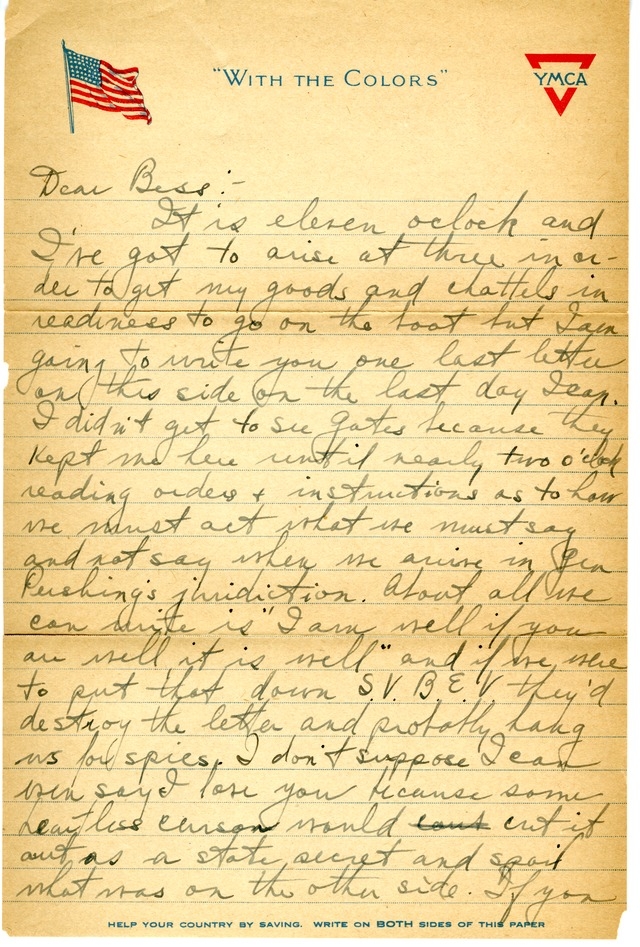 "WITH THE COLORS"
YMCA
Dear Bess:-
It is eleven oclock and
I've got to arise at three in or-
der to get my goods and chattels in
readiness to go on the boat but I am
going to write you one last letter
on this side on the last day I can.
I didn't get to see Gates because they
kept me here until nearly two o'clock
reading orders + instructions as to how
we must act what we must say
and not say when we arrive in Gen
Pershing's juridiction. About all we
can write is "I am well if you
are well it is well" and if we were
to put that down S.V.B.E.V they'd
destroy the letter and probably hang
us for spies. I don't suppose I can
even say I love you because some
heartless censor would cout cut it
out as a state secret and spoil
what was on the other side. If you
HELP YOUR COUNTRY BY SAVING. WRITE ON BOTH SIDES OF THIS PAPER